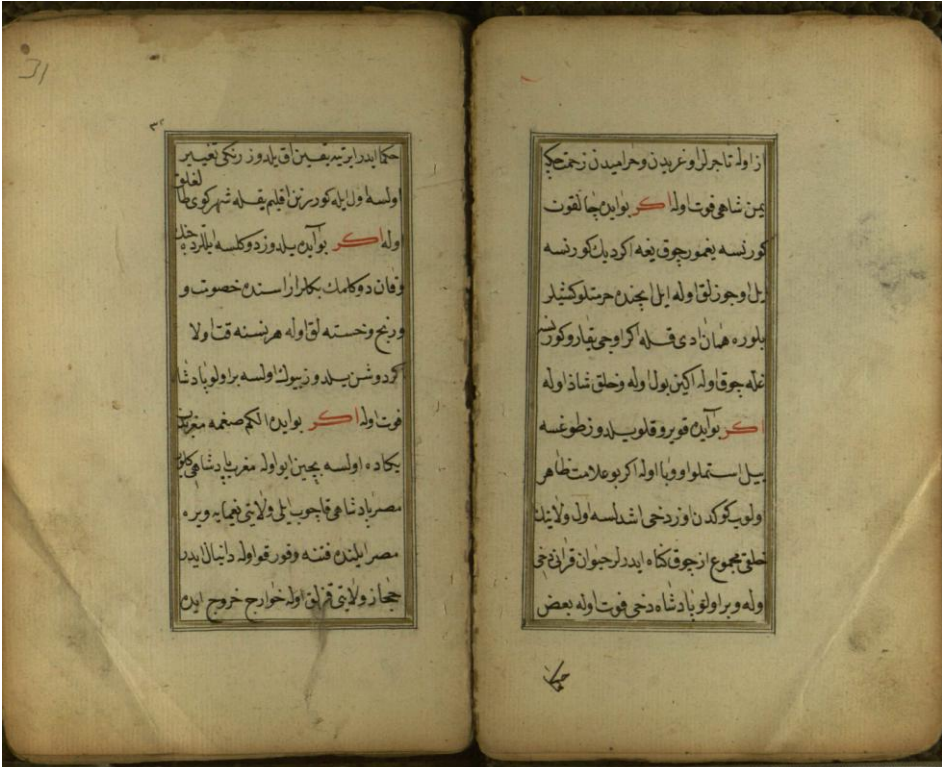 از اوله تاجرلر اوغریدن و حرامیدن زحمت چكه
یمن شاهی فوت اوله اكر بو آیده چالقوت
كورنسه یغمور چوق یغه اكر دیك كورنسه
یل اوجوزلق اوله ایل ایچنده حرمتلو كشیلر
بلوره همان ادی قله اكر اوجی یقارو كورنسه
غله چوق اوله اكین بول اوله و خلق شاذ اوله
اكر بو آیده قویروقلو یلدوز طوغسه
ییل استملو او وبا اوله اكر بو علامت ظاهر
ولوب كوكدن اوز دخی اشدلسه اول ولایتك
خلقی مجموع از چوق كناه ایدرلر حیوان قرانی دخی
وله و بر اولو پادشاه دخی فوت اوله بعض
حكما
31
حكما ایدر ایرتیه یقین اق یلدوز رنكی تغییر
اولسه اول ایله كورر نزن اقلیم یقله شهر كوی طاغلق
اوله اكر بو آیده یلدوز دوكلسه ایللرده جنك
وقان دوكلمك بكلر اراسنده خصومت و
ورنج و خسته لق اوله هر نسنه قت اولا
كردوشن یلدوز بیوك اولسه بر اولو پادشاه
فوت اوله اكر بو آیده الكم صغمه مغربدن
یكاده اولسه بچین ایو اوله مغرب پادشاهی كلوب
مصر پادشاهی قاچوب ایلی ولایتی یغمایه ویره
مصر ایلنده فتنه و قورقو اوله دانیال ایدر
حجاز ولایتی قزلق اوله خوارج خروج ایده